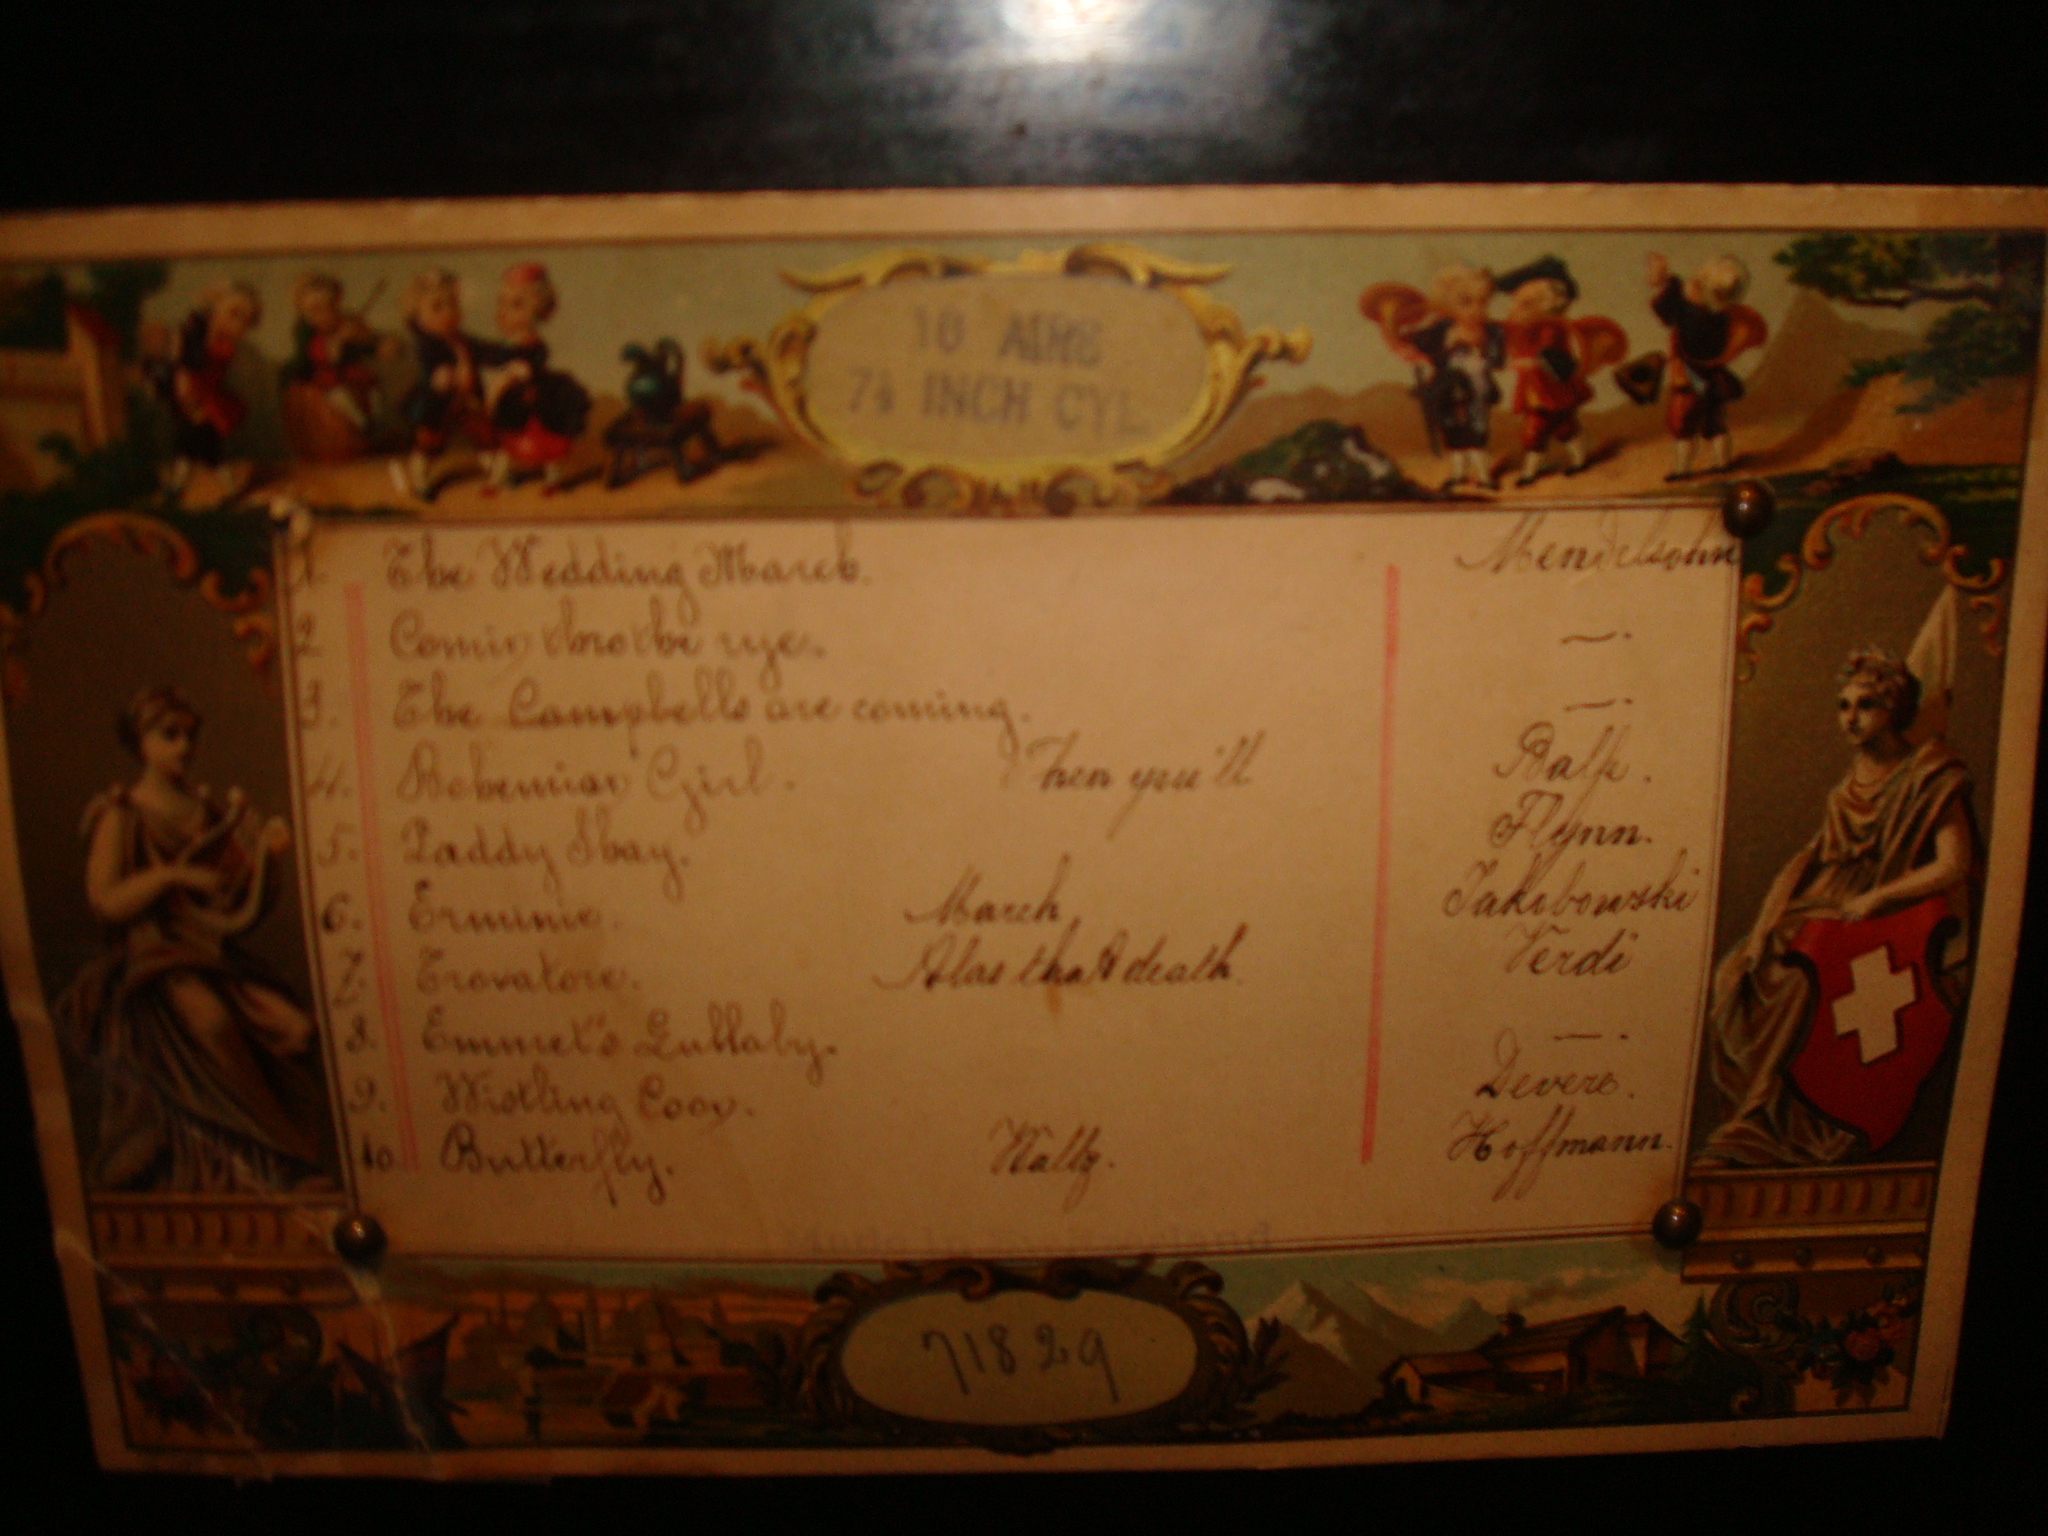 10 AIRS
7½ INCH CYL.
1. The Wedding March. Mendelsohn
2. Comin thro the rye. —.
3. The Campbells are coming. —.
4. Bohemian Girl. Then you'll Balfe.
5. Paddy Shay. Flynn.
6. Erminie. March. Jakobowski
7. Trovatore. Alas that death. Verdi
8. Emmet's Lullaby. —.
9. Wistling Coon. Devere.
10. Butterfly. Waltz. Hoffmann.
Made in Switzerland
71829